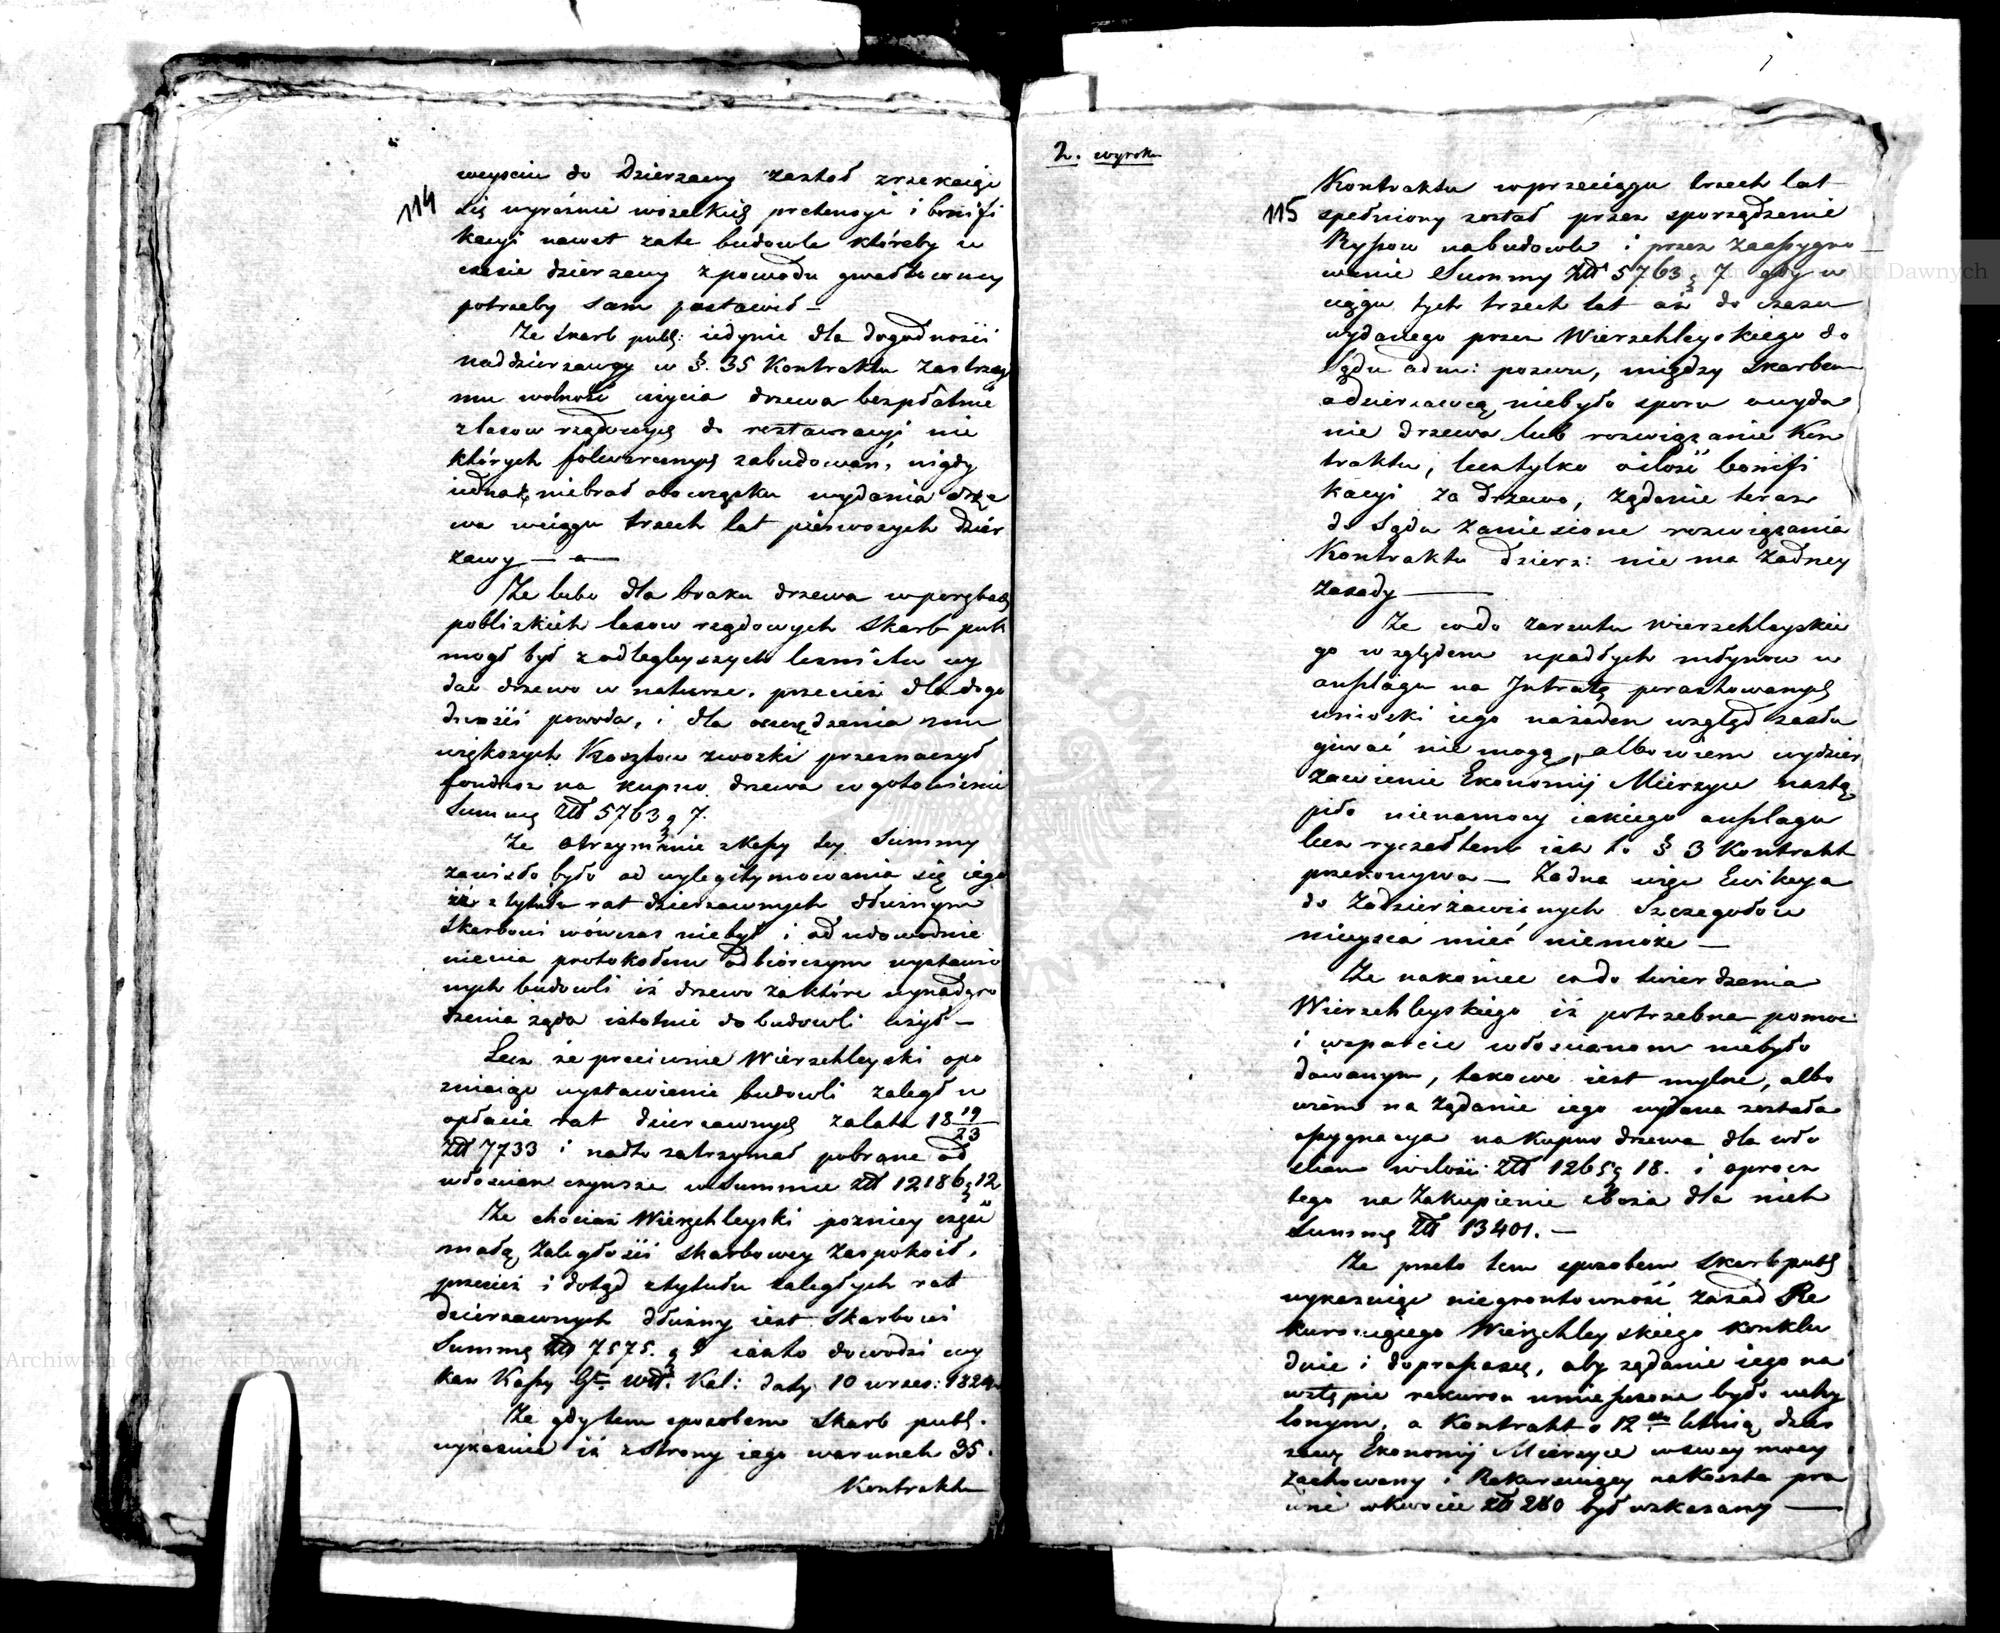 114
weyściu do Dzierzawy zastał zrzekaiąc
się wyraźnie wszelkich pretensyi i bonifi
kacyi nawet zate budowle któreby w
czasie dzierzawy z powodu gwałtowney
potrzeby sam postawił —
Ze skarb publ: iedynie dla dogodności
naddzierzawcy w §. 35 Kontraktu zastrzegł
mu wolność użycia drzewa bezpłatnie
z lasow rządowych do restauracyi nie
których folwarcznych zabudowań, nigdy
iednak niebrał obowiązku wydania drze
wa wciągu trzech lat pierwszych dzier
zawy —
Ze lubo dla braku drzewa w porębach
pobliskich lasow rządowych Skarb pub
mogł był z odlegleyszych lesnictw wy
dać drzewo w naturze, przecież dla dogo
dności powoda, i dla oszczędzenia mu
większych Kosztow zwozki przeznaczył
fundusz na kupno drzewa w gotowiznie
Summę Złł 5763 g 7.
Ze otrzymanie z Kassy tey Summy
zawisło było od wylegitymowania się iego
że z tytułu rat dzierzawnych dłużnym
Skarbowi wówczas niebył i od udowodnie
nienia protokołem odbiorczym wystawio
nych budowli iż drzewo zaktóre wynadgro
dzenia żąda istotnie do budowli użył —
Lecz że przeciwnie Wierzchleyski opo
zniaiąc wystawienie budowli zaległ w
opłacie rat dzierzawnych zalata 18 19/23
Złł 7733 i nadto zatrzymał pobrane od
włościan czynsze w Summie Złł 12186 g 12
Ze chociaż Wierzchleyski pozniey część
małą zaległości skarbowey zaspokoił,
przecież i dotąd z tytułu zaległych rat
dzierzawnych dłużny iest Skarbowi
Summę Złł 7575. g 9 iako dowodzi wy
kaz Kassy Gł. Wdz. Kal: daty 10 wrześ: 1824
Ze gdy tem sposobem Skarb publ.
wykazuie iż z strony iego warunek 35.
Kontraktu
2. wyroku
115
Kontraktu w przeciągu trzech lat
spełniony został przez sporządzenie
Ryssow na budowle i przez zaassygno
wanie Summy Złł 5763 g 7 gdy w
ciągu tych trzech lat aż do czasu
wydanego przez Wierzchleyskiego do
Sądu adm: pozwu, między Skarbem
a dzierzawcą niebyło sporu o wyda
nie drzewa lub rozwiązanie Kon
traktu, lecz tylko o ilość bonifi
kacyi za drzewo, żądanie teraz
do Sądu zaniesione rozwiązania
Kontraktu dzierz: nie ma żadney
zasady —
Ze codo zarzutu Wierzchleyskie
go względem upadłych młynow w
anszlagu na Intratę porachowanych
wnioski iego nażaden wzgląd zasłu
giwać nie mogą, albowiem wydzier
zawienie Ekonomij Mierzyce nastą
piło nienamocy iakiego anszlagu
lecz ryczałtem iak to § 3 Kontrakt
przekonywa — Żadna więc Ewikcya
do Zadzierżawionych Szczegołow
mieysca mieć niemoże —
Ze nakoniec codo twierdzenia
Wierzchleyskiego iż potrzebna pomoc
i wsparcie włościanom niebyło
dawanym, takowe iest mylne, albo
wiem na żądanie iego wydana została
assygnacya na kupno drzewa dla wło
ścian w ilości Złł 1265 g 18. i oprocz
tego na Zakupienie zboża dla nich
Summę Złł 13401. —
Ze przeto tem sposobem Skarb publ
wykazuiąc niegruntowność zasad Re
kuruiącego Wierzchleyskiego konklu
duie i doprasza się, aby żądanie iego na
wstępie rekursu umieszczone było uchy
lonym, a Kontrakt o 12sto letnią dzier
zawę Ekonomij Mierzyce w swey mocy
zachowany i Rekuruiący na Koszta pra
wne w kwocie Złł 280 był wskazany —
Archiwum Główne Akt Dawnych